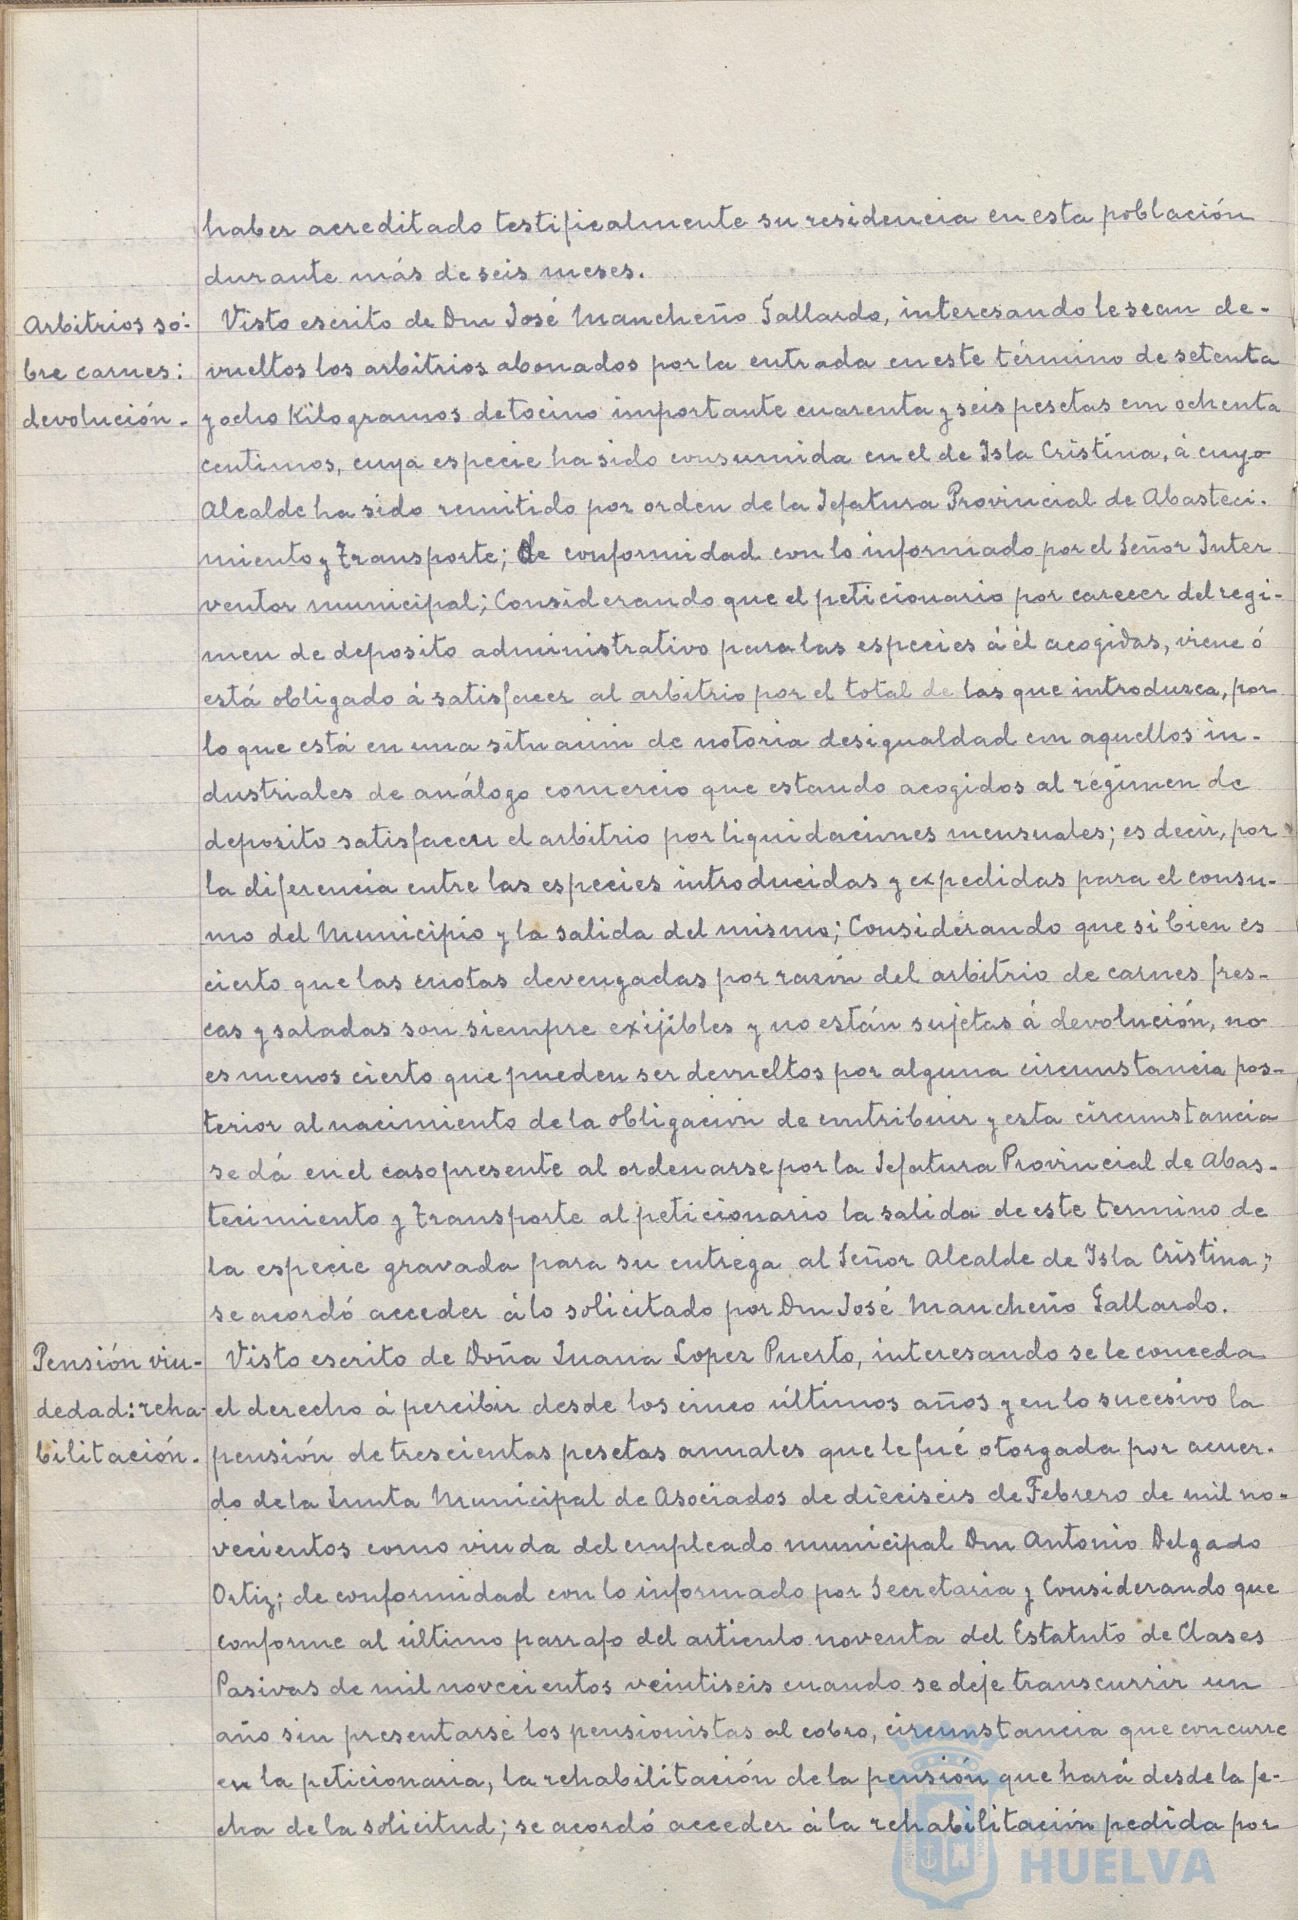 haber acreditado testificalmente su residencia en esta población
durante más de seis meses.
Arbitrios só-
bre carnes:
devolución.-
Visto escrito de Don José Mancheño Gallardo, interesando le sean de-
vueltos los arbitrios abonados por la entrada en este término de setenta
y ocho Kilogramos de tocino importante cuarenta y seis pesetas con ochenta
centimos, cuya especie ha sido consumida en el de Isla Cristina, á cuyo
Alcalde ha sido remitido por orden de la Jefatura Provincial de Abasteci-
miento y Transporte; de conformidad con lo informado por el Señor Inter
ventor municipal; Considerando que el peticionario por carecer del regi-
men de deposito administrativo para las especies á él acogidas, viene ó
está obligado á satisfacer al arbitrio por el total de las que introduzca, por
lo que está en una situación de notoria desigualdad con aquellos in-
dustriales de análogo comercio que estando acogidos al régimen de
deposito satisfacen el arbitrio por liquidaciones mensuales; es decir, por
la diferencia entre las especies introducidas y expedidas para el consu-
mo del Municipio y la salida del mismo; Considerando que si bien es
cierto que las cuotas devengadas por razón del arbitrio de carnes fres-
cas y saladas son siempre exijibles y no están sujetas á devolución, no
es menos cierto que pueden ser devueltos por alguna circunstancia pos-
terior al nacimiento de la obligación de contribuir y esta circunstancia
se dá en el caso presente al ordenarse por la Jefatura Provincial de Abas-
tecimiento y Transporte al peticionario la salida de este termino de
la especie gravada para su entrega al Señor Alcalde de Isla Cristina;
se acordó acceder á lo solicitado por Don José Mancheño Gallardo.
Pensión viu-
dedad: reha-
bilitación.-
Visto escrito de Doña Juana Lopez Puerto, interesando se le conceda
el derecho á percibir desde los cinco últimos años y en lo sucesivo la
pensión de trescientas pesetas anuales que le fué otorgada por acuer-
do de la Junta Municipal de Asociados de dieciseis de Febrero de mil no-
vecientos como viuda del empleado municipal Don Antonio Delgado
Ortiz; de conformidad con lo informado por Secretaria y Considerando que
conforme al último parrafo del articulo noventa del Estatuto de Clases
Pasivas de mil novecientos veintiseis cuando se deje transcurrir un
año sin presentarse los pensionistas al cobro, circunstancia que concurre
en la peticionaria, la rehabilitación de la pensión que hará desde la fe-
cha de la solicitud; se acordó acceder á la rehabilitación pedida por
HUELVA